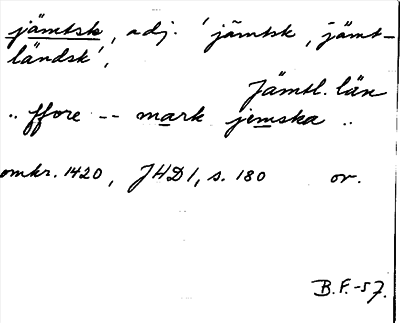 jämtsk, adj. 'jämtsk, jämt-
ländsk',
Jämtl. län
.. ffore -- mark jemska ..
omkr. 1420, JHD 1, s. 180 or.
B.F.-57.